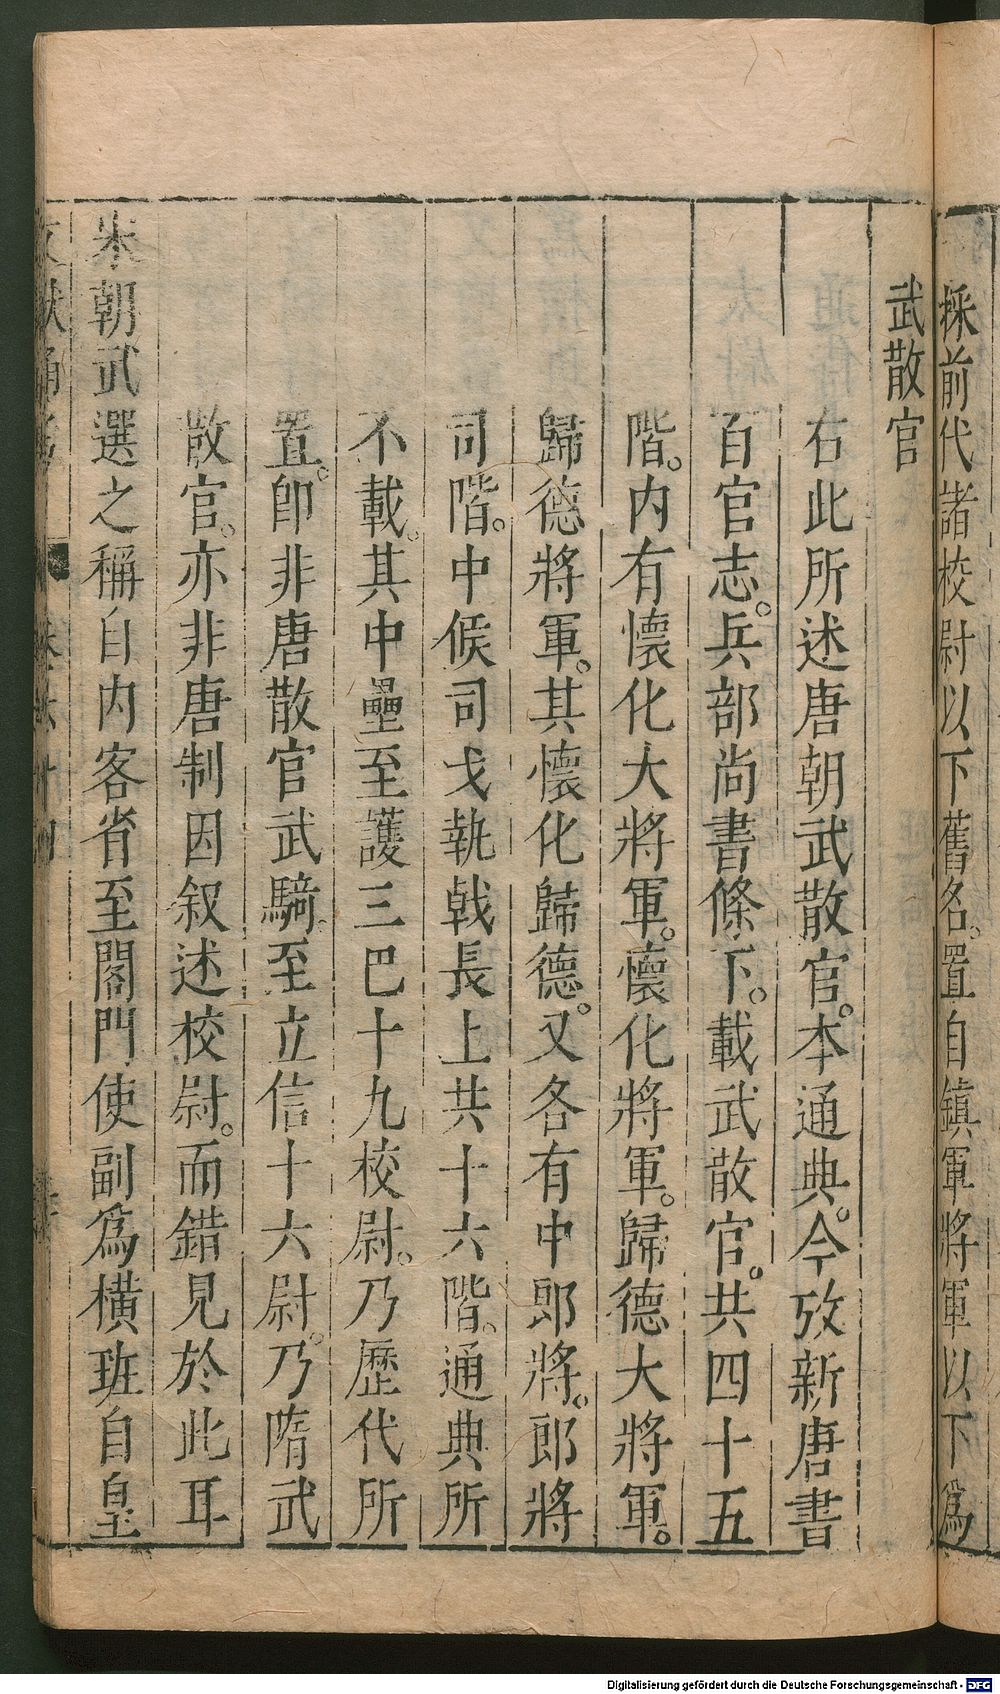 採前代諸校尉以下舊名。置自鎮軍將軍以下爲
武散官
右此所述唐朝武散官。本通典。今攷新唐書
百官志。兵部尚書條下。載武散官。共四十五
階。内有懷化大將軍。懷化將軍。歸德大將軍。
歸德將軍。其懷化歸德。又各有中郎將。郎將
司階。中候司戈執戟長上共十六階。通典所
不載。其中壘至護三巴十九校尉。乃歷代所
置。卽非唐散官武騎。至立信十六尉。乃隋武
散官。亦非唐制因叙述校尉。而錯見於此耳
宋朝武選之稱自内客省至閣門使副爲橫班自皇
文獻通考
Digitalisierung gefördert durch die Deutsche Forschungsgemeinschaft - DFG